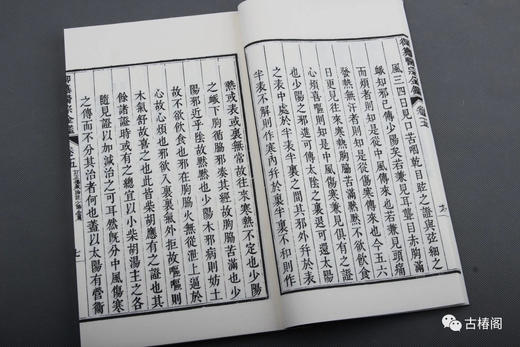 御纂醫宗金鑑 卷之五
風三四日見口苦咽乾目眩之證與弦細之
脈知邪已傳少陽矣若兼見耳聾目赤胸滿
而煩者則知是從中風傳來也若兼見頭痛
發熱無汗者則知是從傷寒傳來也今五六
日更見往來寒熱胸脇苦滿黙黙不欲飲食
心煩喜嘔則知是中風傷寒兼見俱有之證
也少陽之邪進可傳太陰之裏退可還太陽
之表中處於半表半裏之間其邪外并於表
半表不解則作寒內并於裏半裏不和則作
熱或表或裏無常故往來寒熱不定也少陽
之脈下胸循脇邪湊其經故胸脇苦滿也少
陽邪近乎陰故黙黙也少陽木邪病則妨土
故不欲飲食也邪在胸脇火無從泄上逼於
心故心煩也邪欲入裏裏氣外拒故嘔嘔則
木氣舒故喜之也此皆柴胡應有之證也其
餘諸證時或有之總宜以小柴胡湯主之各
隨見證以加減治之可耳然既分中風傷寒
之傳而不分其治者何也蓋以太陽有營衛
七
古椿阁